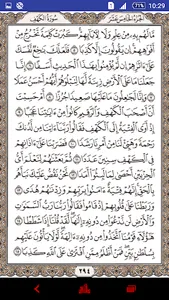 10:29
سُورَةُ الكَهْفِ الجُزْءُ الخَامِسَ عَشَرَ
مَّا لَهُم بِهِۦ مِنْ عِلْمٍ وَلَا لِءَابَآئِهِمْ ۚ كَبُرَتْ كَلِمَةً تَخْرُجُ مِنْ
أَفْوَٰهِهِمْ ۚ إِن يَقُولُونَ إِلَّا كَذِبًا ۝٥ فَلَعَلَّكَ بَٰخِعٌ نَّفْسَكَ
عَلَىٰٓ ءَاثَٰرِهِمْ إِن لَّمْ يُؤْمِنُوا۟ بِهَٰذَا ٱلْحَدِيثِ أَسَفًا ۝٦ إِنَّا
جَعَلْنَا مَا عَلَى ٱلْأَرْضِ زِينَةً لَّهَا لِنَبْلُوَهُمْ أَيُّهُمْ أَحْسَنُ عَمَلًا
۝٧ وَإِنَّا لَجَٰعِلُونَ مَا عَلَيْهَا صَعِيدًا جُرُزًا ۝٨ أَمْ حَسِبْتَ
أَنَّ أَصْحَٰبَ ٱلْكَهْفِ وَٱلرَّقِيمِ كَانُوا۟ مِنْ ءَايَٰتِنَا عَجَبًا
۝٩ إِذْ أَوَى ٱلْفِتْيَةُ إِلَى ٱلْكَهْفِ فَقَالُوا۟ رَبَّنَآ ءَاتِنَا مِن لَّدُنكَ
رَحْمَةً وَهَيِّئْ لَنَا مِنْ أَمْرِنَا رَشَدًا ۝١٠ فَضَرَبْنَا عَلَىٰٓ ءَاذَانِهِمْ
فِى ٱلْكَهْفِ سِنِينَ عَدَدًا ۝١١ ثُمَّ بَعَثْنَٰهُمْ لِنَعْلَمَ أَىُّ
ٱلْحِزْبَيْنِ أَحْصَىٰ لِمَا لَبِثُوٓا۟ أَمَدًا ۝١٢ نَّحْنُ نَقُصُّ عَلَيْكَ
نَبَأَهُم بِٱلْحَقِّ ۚ إِنَّهُمْ فِتْيَةٌ ءَامَنُوا۟ بِرَبِّهِمْ وَزِدْنَٰهُمْ هُدًى
۝١٣ وَرَبَطْنَا عَلَىٰ قُلُوبِهِمْ إِذْ قَامُوا۟ فَقَالُوا۟ رَبُّنَا رَبُّ ٱلسَّمَٰوَٰتِ
وَٱلْأَرْضِ لَن نَّدْعُوَا۟ مِن دُونِهِۦٓ إِلَٰهًا ۖ لَّقَدْ قُلْنَآ إِذًا شَطَطًا
۝١٤ هَٰٓؤُلَآءِ قَوْمُنَا ٱتَّخَذُوا۟ مِن دُونِهِۦٓ ءَالِهَةً ۖ لَّوْلَا يَأْتُونَ عَلَيْهِم
بِسُلْطَٰنٍۭ بَيِّنٍ ۖ فَمَنْ أَظْلَمُ مِمَّنِ ٱفْتَرَىٰ عَلَى ٱللَّهِ كَذِبًا ۝١٥
٢٩٤